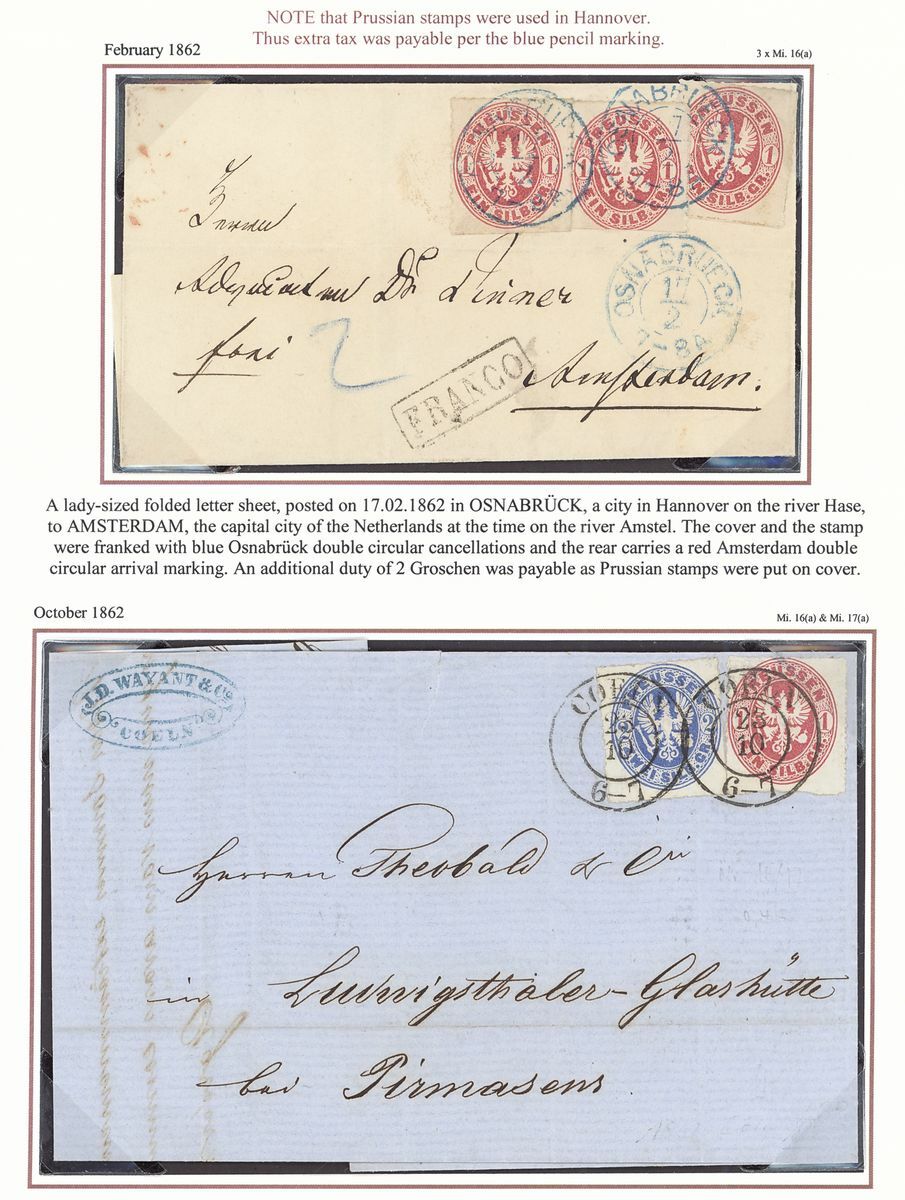 NOTE that Prussian stamps were used in Hannover.
Thus extra tax was payable per the blue pencil marking.
February 1862
3 x Mi. 16(a)
PREUSSEN
1 1
EIN SILB.GR.
PREUSSEN
1 1
EIN SILB.GR.
PREUSSEN
1 1
EIN SILB.GR.
OSNABRUECK
17
2
7-8A
Herrn
Advocaten Dr.
2
FRANCO
Amsterdam.
A lady-sized folded letter sheet, posted on 17.02.1862 in OSNABRÜCK, a city in Hannover on the river Hase,
to AMSTERDAM, the capital city of the Netherlands at the time on the river Amstel. The cover and the stamp
were franked with blue Osnabrück double circular cancellations and the rear carries a red Amsterdam double
circular arrival marking. An additional duty of 2 Groschen was payable as Prussian stamps were put on cover.
October 1862
Mi. 16(a) & Mi. 17(a)
J.D. WAYANT & Co.
COELN
PREUSSEN
2
ZWEI SILB.GR.
PREUSSEN
1
EIN SILB.GR.
COELN
25
10
6-7
COELN
25
10
6-7
Herren Theobald & Cie
in Ludwigsthaler-Glashütte
bei Pirmasens